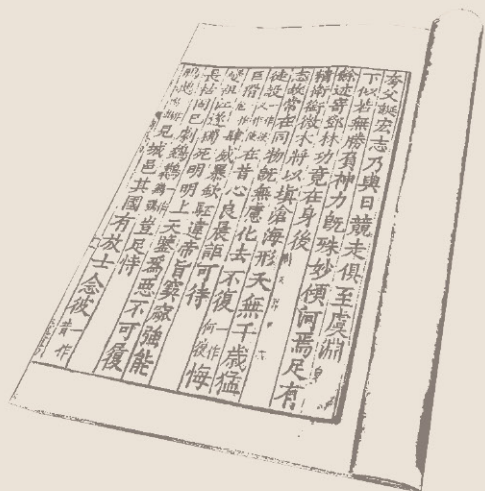 夸父誕宏志乃與日競走俱至虞淵
下似若無勝負神力既殊妙傾河焉足有
餘迹寄鄧林功竟在身後
精衛銜微木將以填滄海形夭無千歲猛
志故常在同物既無慮化去不復一作何復悔
徒設一作役在昔心良晨詎可待
巨猾肆威暴欽駓違帝旨窫窳強能
變祖江遂獨死明明上天鑒為惡不可履
長枯固已劇鵕鶚豈足恃
見城邑其國有放士念彼一作昔